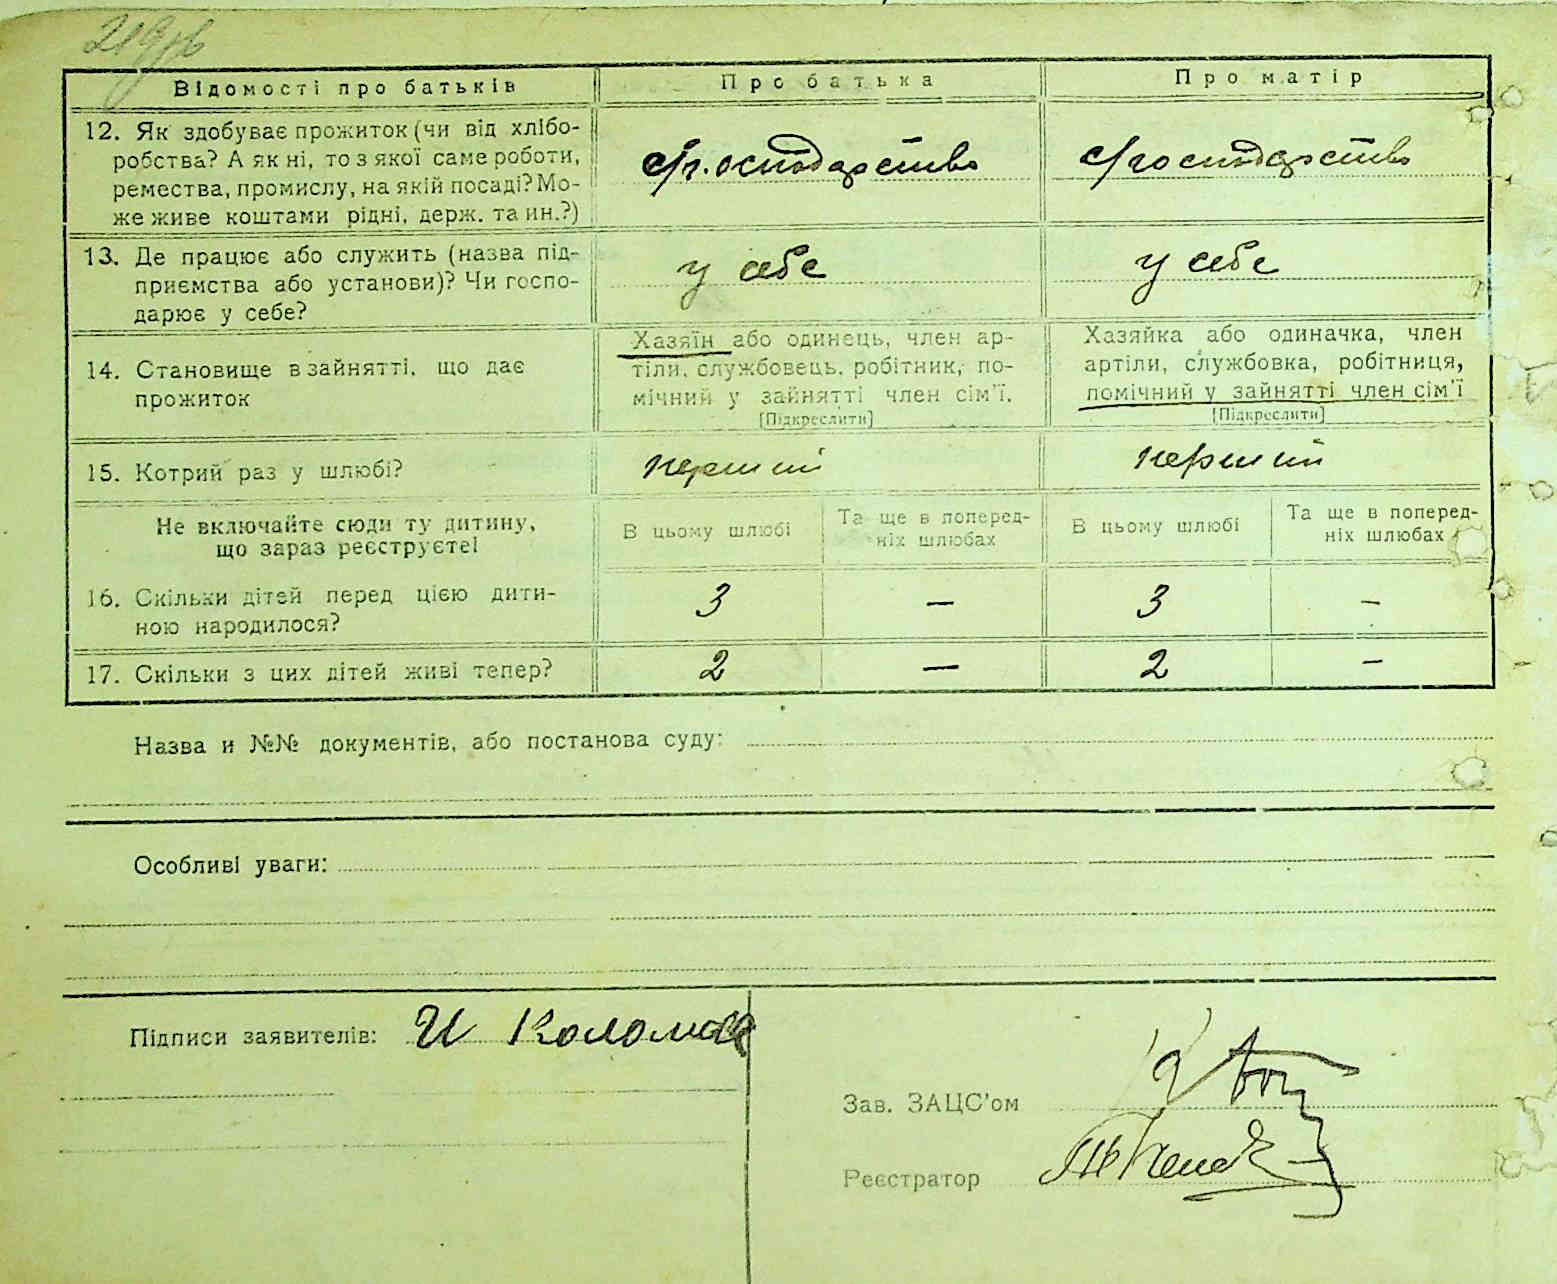 219зв
Відомості про батьків
Про батька
Про матір
12. Як здобуває прожиток (чи від хлібо-
робства? А як ні, то з якої саме роботи,
ремества, промислу, на якій посаді? Мо-
же живе коштами рідні, держ. та ин.?)
с/г.осподарство
с/господарство
13. Де працює або служить (назва під-
приємства або установи)? Чи госпо-
дарює у себе?
у себе
у себе
14. Становище в зайнятті, що дає
прожиток
Хазяїн або одинець, член ар-
тіли, службовець, робітник, по-
мічний у зайнятті член сім'ї.
[Підкреслити]
Хазяйка або одиначка, член
артіли, службовка, робітниця,
помічний у зайнятті член сім'ї
[Підкреслити]
15. Котрий раз у шлюбі?
перший
перший
Не включайте сюди ту дитину,
що зараз реєструєте!
В цьому шлюбі
Та ще в поперед-
ніх шлюбах
В цьому шлюбі
Та ще в поперед-
ніх шлюбах
16. Скільки дітей перед цією дити-
ною народилося?
3
—
3
—
17. Скільки з цих дітей живі тепер?
2
—
2
—
Назва и №№ документів, або постанова суду:
Особливі уваги:
Підписи заявителів: И
Зав. ЗАЦС'ом
Реєстратор